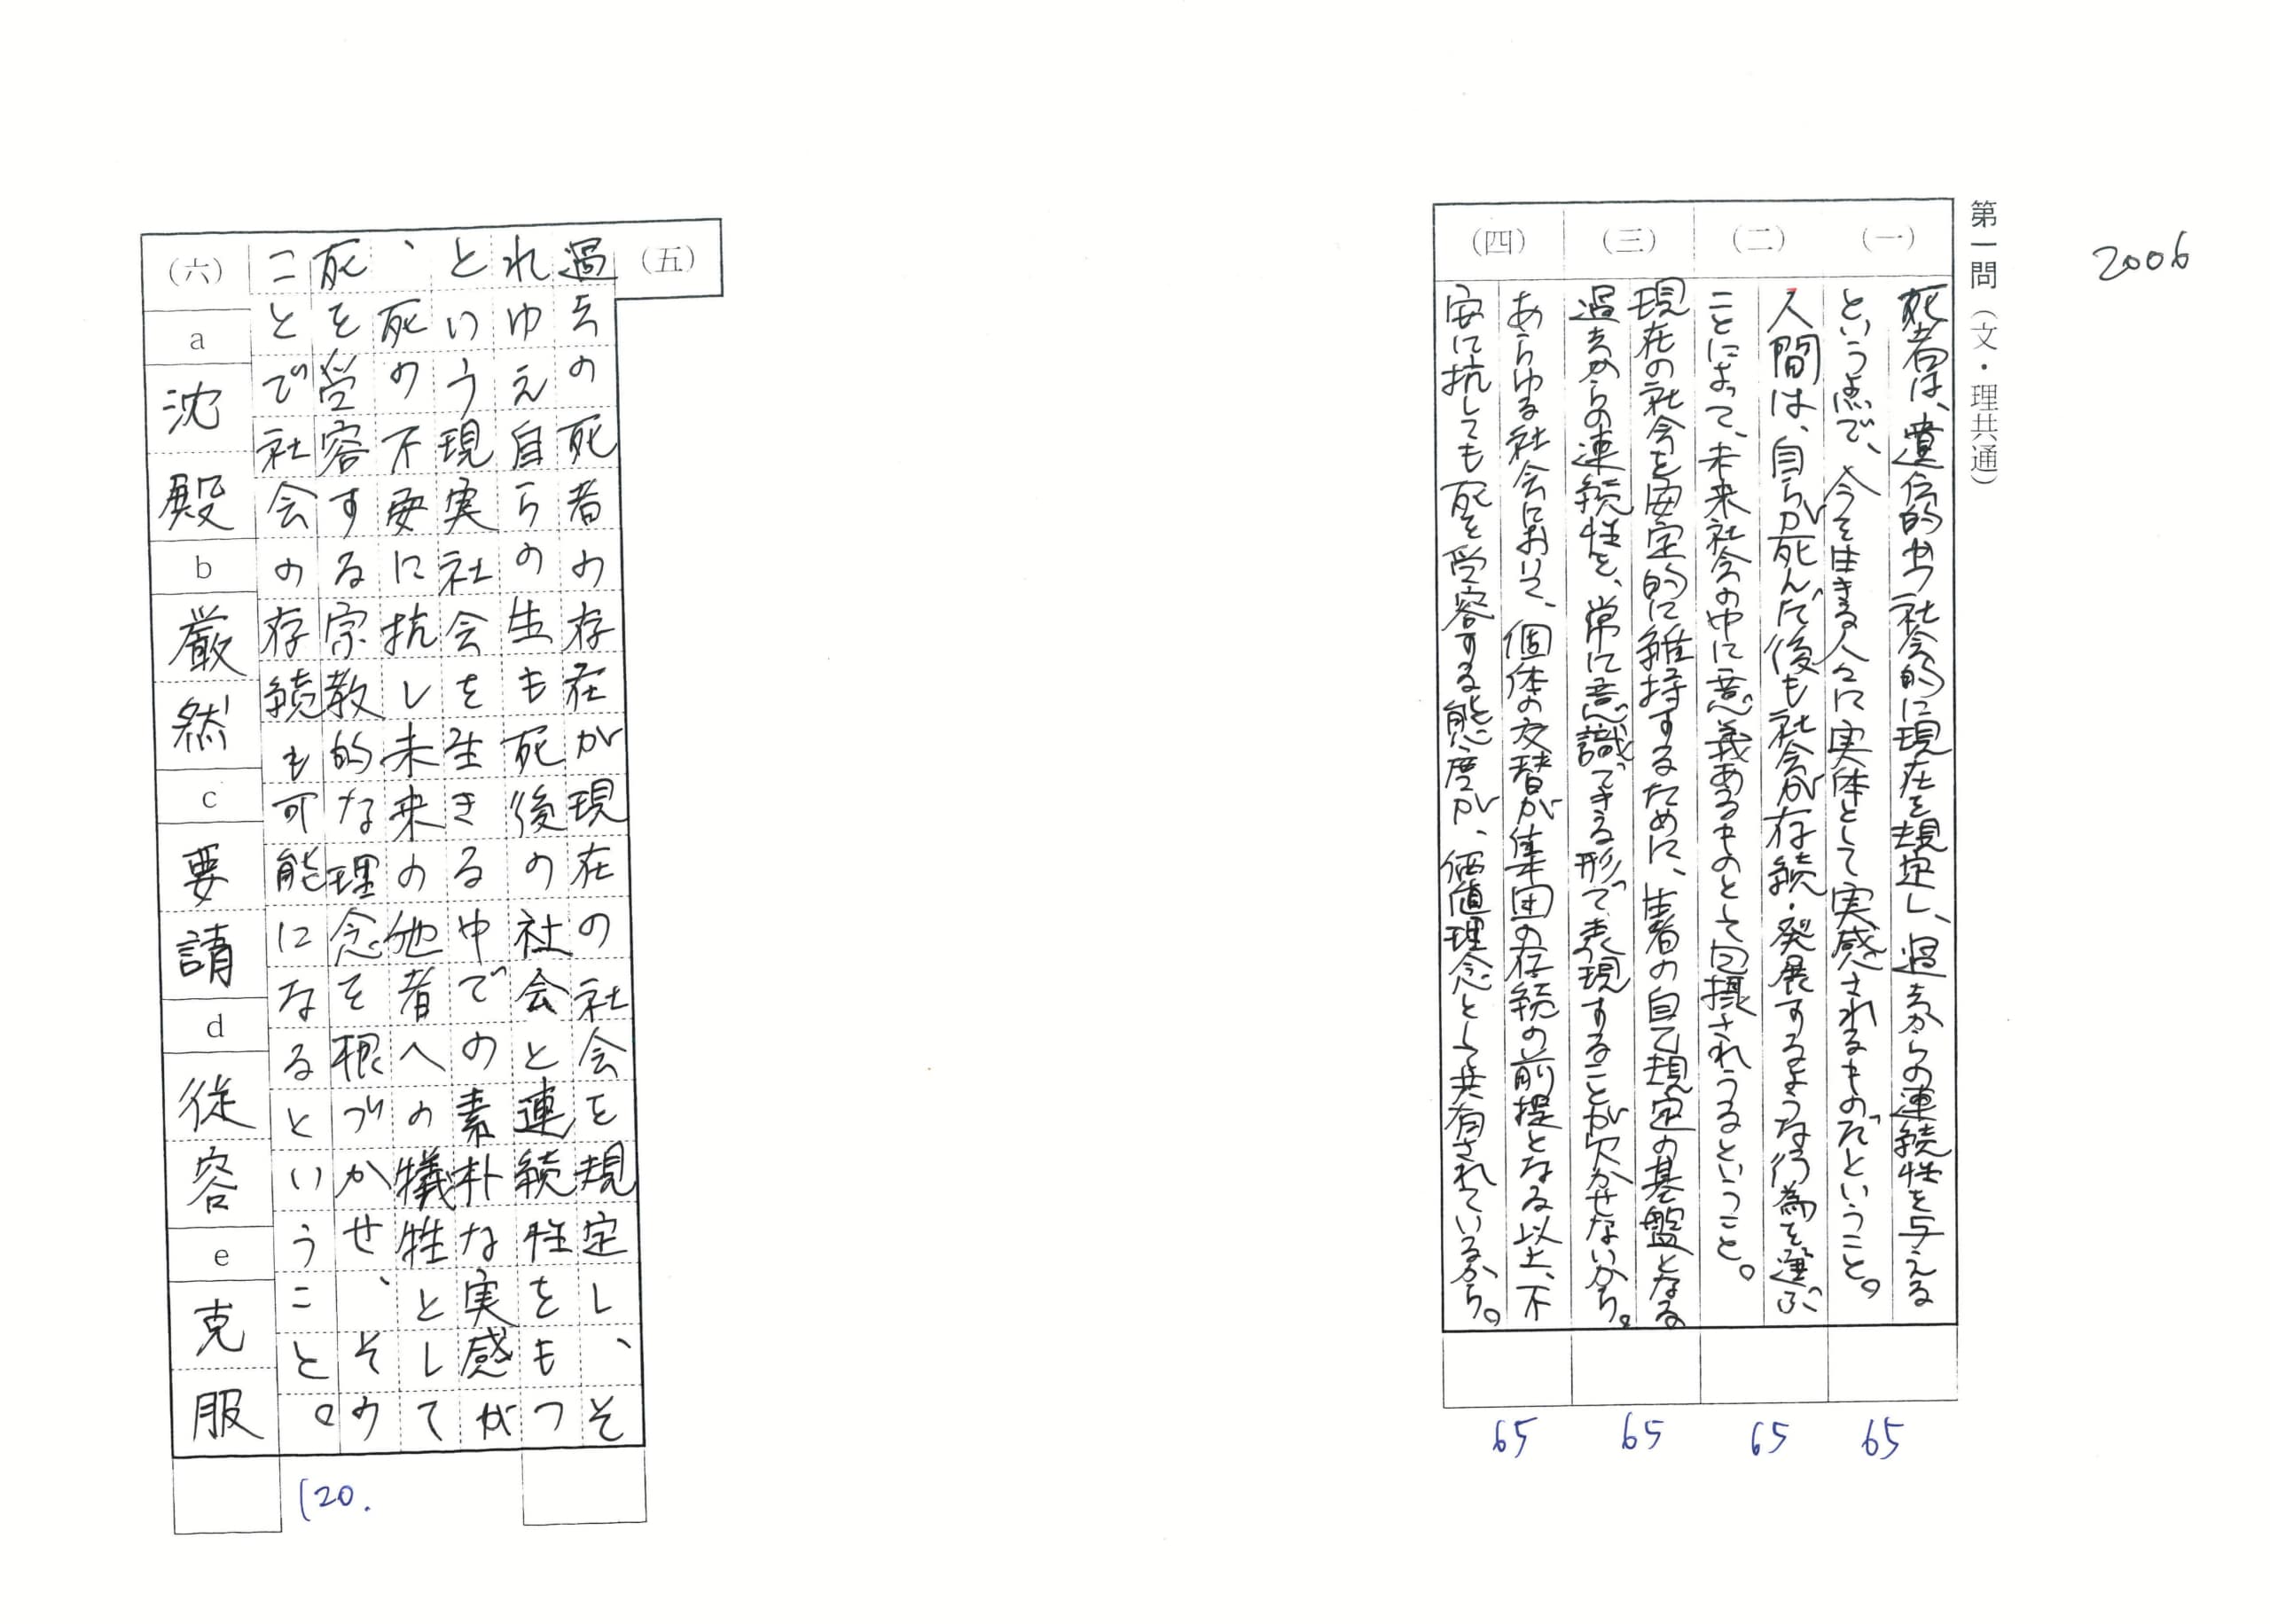 2006
第一問（文・理共通）
（一）
死者は、遺伝的かつ社会的に現在を規定し、過去からの連続性を与える
という点で、今を生きる人々に実体として実感されるものだということ。
（二）
人間は、自らが死んだ後も社会が存続・発展するような行為を選ぶ
ことによって、未来社会の中に意義あるものとして包摂されうるということ。
（三）
現在の社会を安定的に維持するために、生者の自己規定の基盤となる
過去からの連続性を、常に意識できる形で表現することが欠かせないから。
（四）
あらゆる社会において、個体の交替が集団の存続の前提となる以上、不
安に抗しても死を受容する態度が、価値理念として共有されているから。
65
65
65
65
（五）
過去の死者の存在が現在の社会を規定し、そ
れゆえ自らの生も死後の社会と連続性をもつ
という現実社会を生きる中での素朴な実感が
、死の不安に抗し未来の他者への犠牲として
死を受容する宗教的な理念を根づかせ、その
ことで社会の存続も可能になるということ。
120.
（六）
a
沈殿
b
厳然
c
要請
d
従容
e
克服